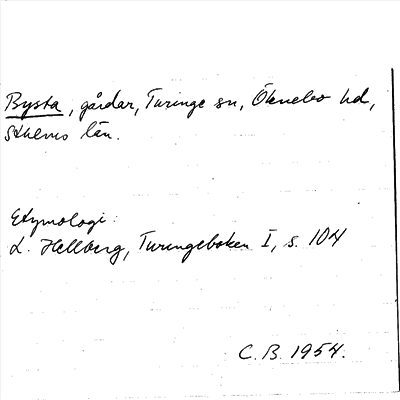 Bysta, gårdar, Turinge sn, Öknebo hd,
Sthlms län.
Etymologi:
L. Hellberg, Turingeboken I, s. 104
C.B. 1954.